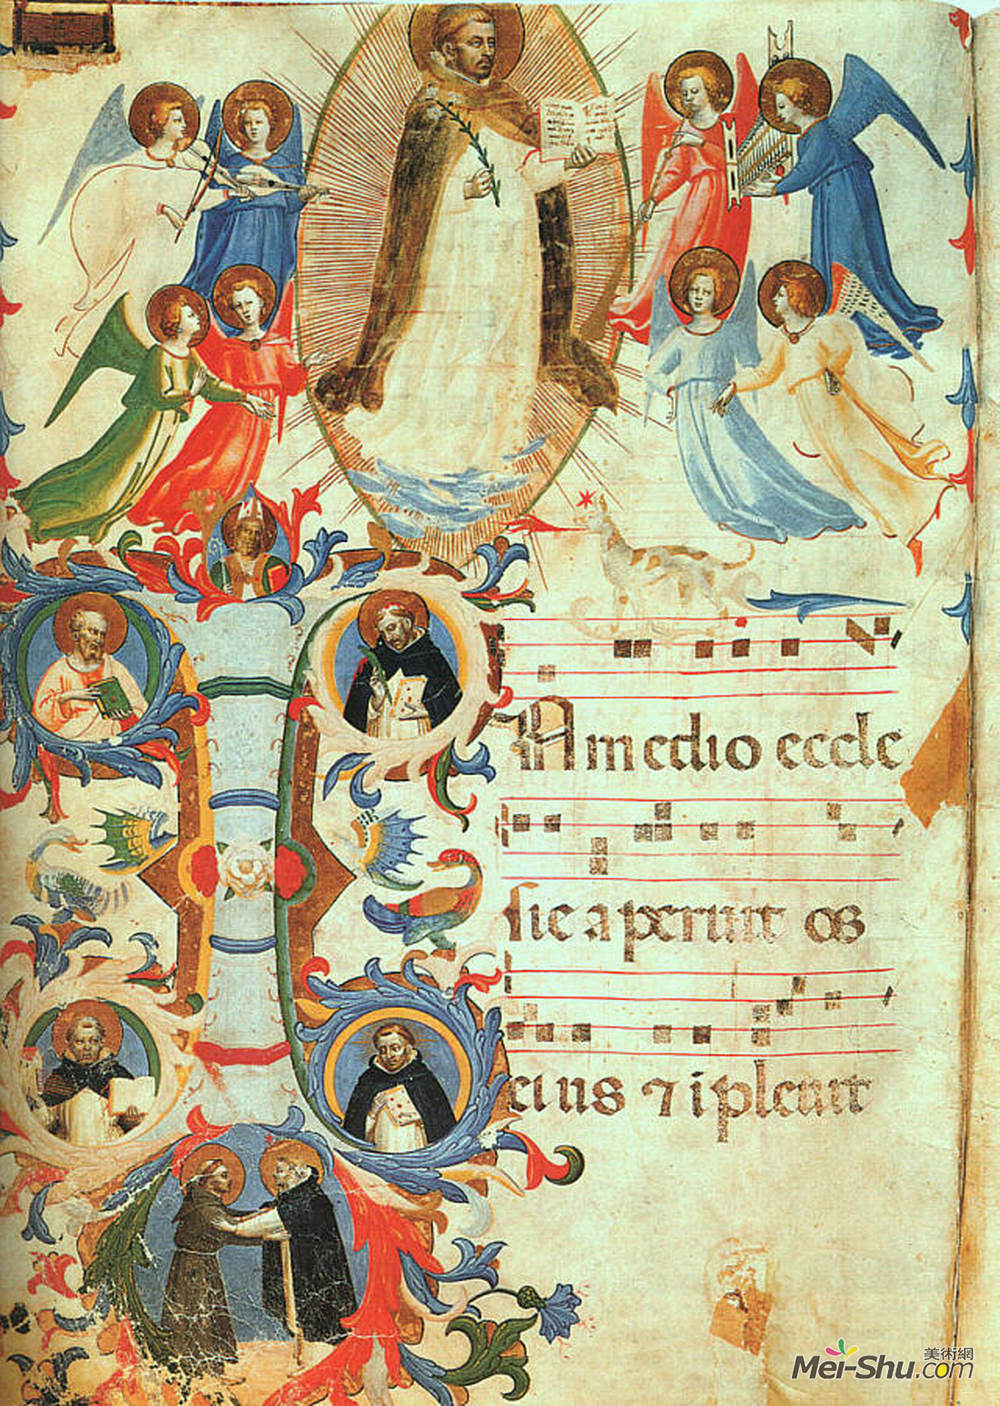 In medio eccle
sie aperuit os
eius ⁊ ipleuit
美術網
Mei-Shu.com